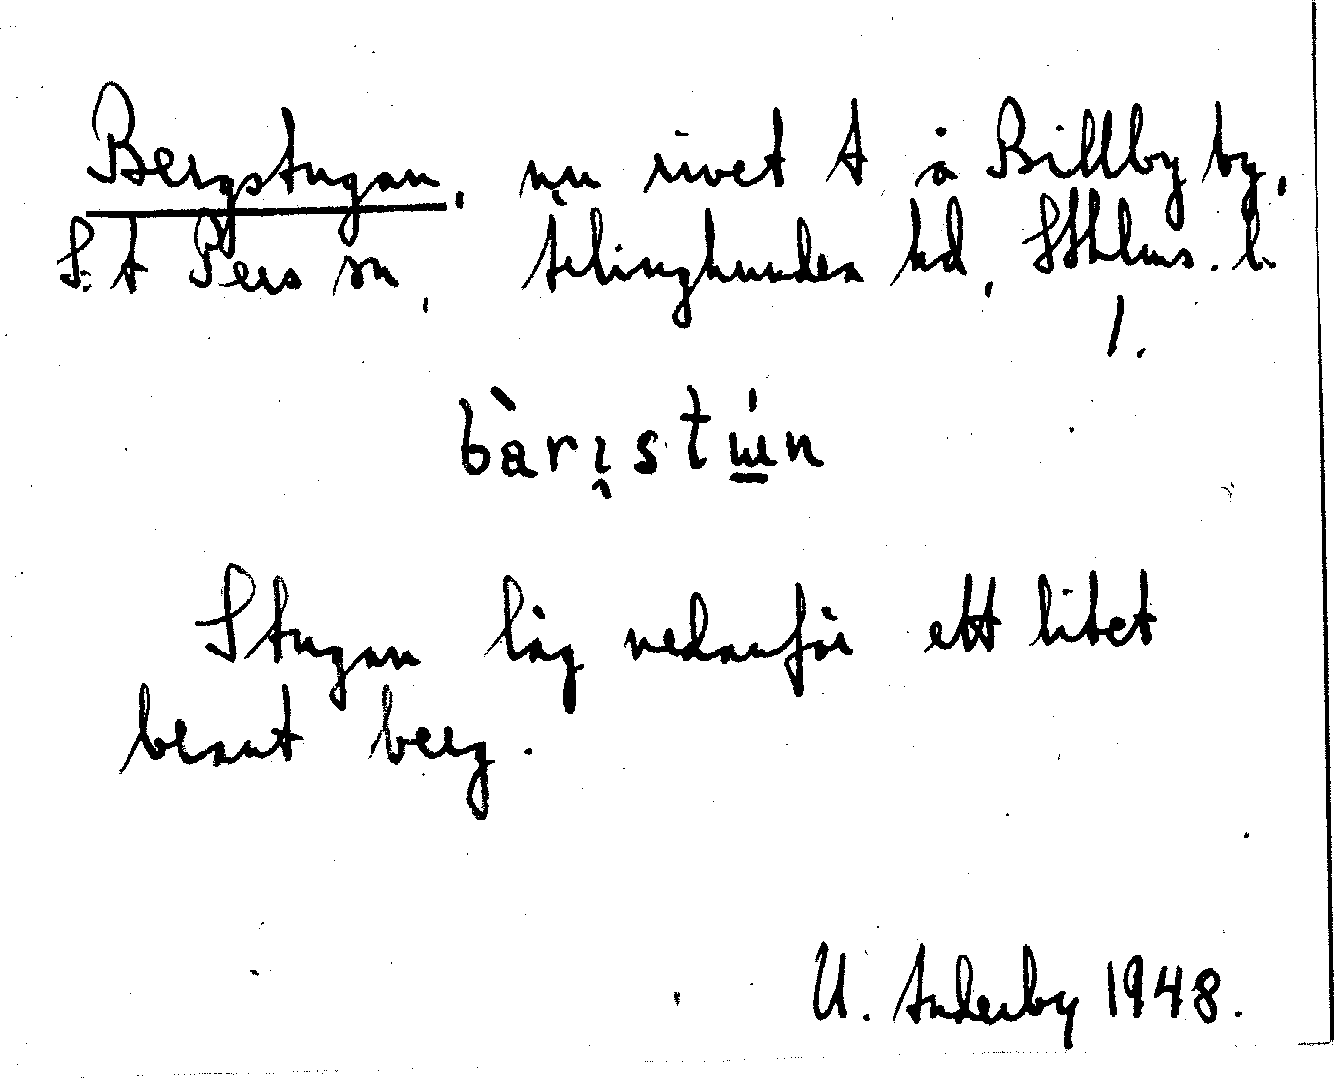 Bergstugan, nu rivet t å Billby by,
S:t Pers sn, Ärlinghundra hd, Sthlms. l.
1.
bàrı̣stɯ́n
Stugan låg nedanför ett litet
brant berg.
U. 1948.